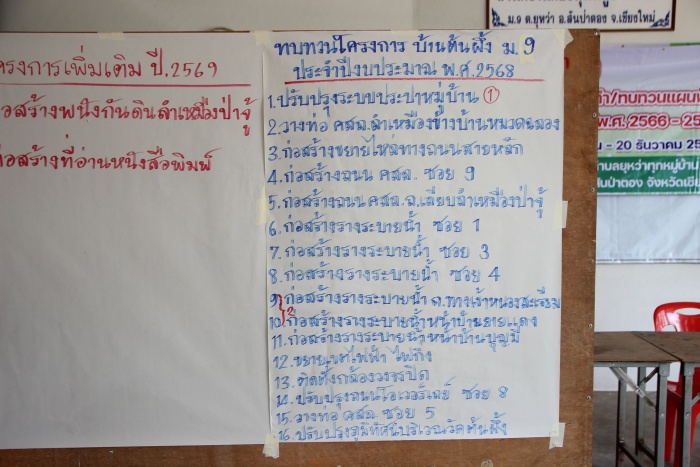 โครงการเพิ่มเติม ปี.2569
ก่อสร้างพนังกันดินลำเหมืองป่าจู้
ก่อสร้างที่อ่านหนังสือพิมพ์
ทบทวนโครงการ บ้านต้นผึ้ง ม.9
ประจำปีงบประมาณ พ.ศ.2568
1.ปรับปรุงระบบประปาหมู่บ้าน ①
2.วางท่อ คสล.ลำเหมืองข้างบ้านหมวดฉลอง
3.ก่อสร้างขยายไหล่ทางถนนสายหลัก
4.ก่อสร้างถนน คสล. ซอย 9
5.ก่อสร้างถนน คสล.ถ.เลียบลำเหมืองป่าจู้
6.ก่อสร้างรางระบายน้ำ ซอย 1
7.ก่อสร้างรางระบายน้ำ ซอย 3
8.ก่อสร้างรางระบายน้ำ ซอย 4
9.ก่อสร้างรางระบายน้ำ ถ.ทางเข้าหนองสะเรียม
10.ก่อสร้างรางระบายน้ำหน้าบ้านยายแดง
11.ก่อสร้างรางระบายน้ำหน้าบ้านบุญมี
12.ขยายเขตไฟฟ้า ไฟกิ่ง
13.ติดตั้งกล้องวงจรปิด
14.ปรับปรุงถนนโอเวอร์เลย์ ซอย 8
15.วางท่อ คสล. ซอย 5
16.ปรับปรุงภูมิทัศน์บริเวณวัดต้นผึ้ง
ม.๑ ต.ยุหว่า อ.สันป่าตอง จ.เชียงใหม่
/ทบทวนแผน
พ.ศ.2566-25
- 20 ธันวาคม 25
บาลยุหว่าทุกหมู่บ้าน
สันป่าตอง จังหวัดเชีย